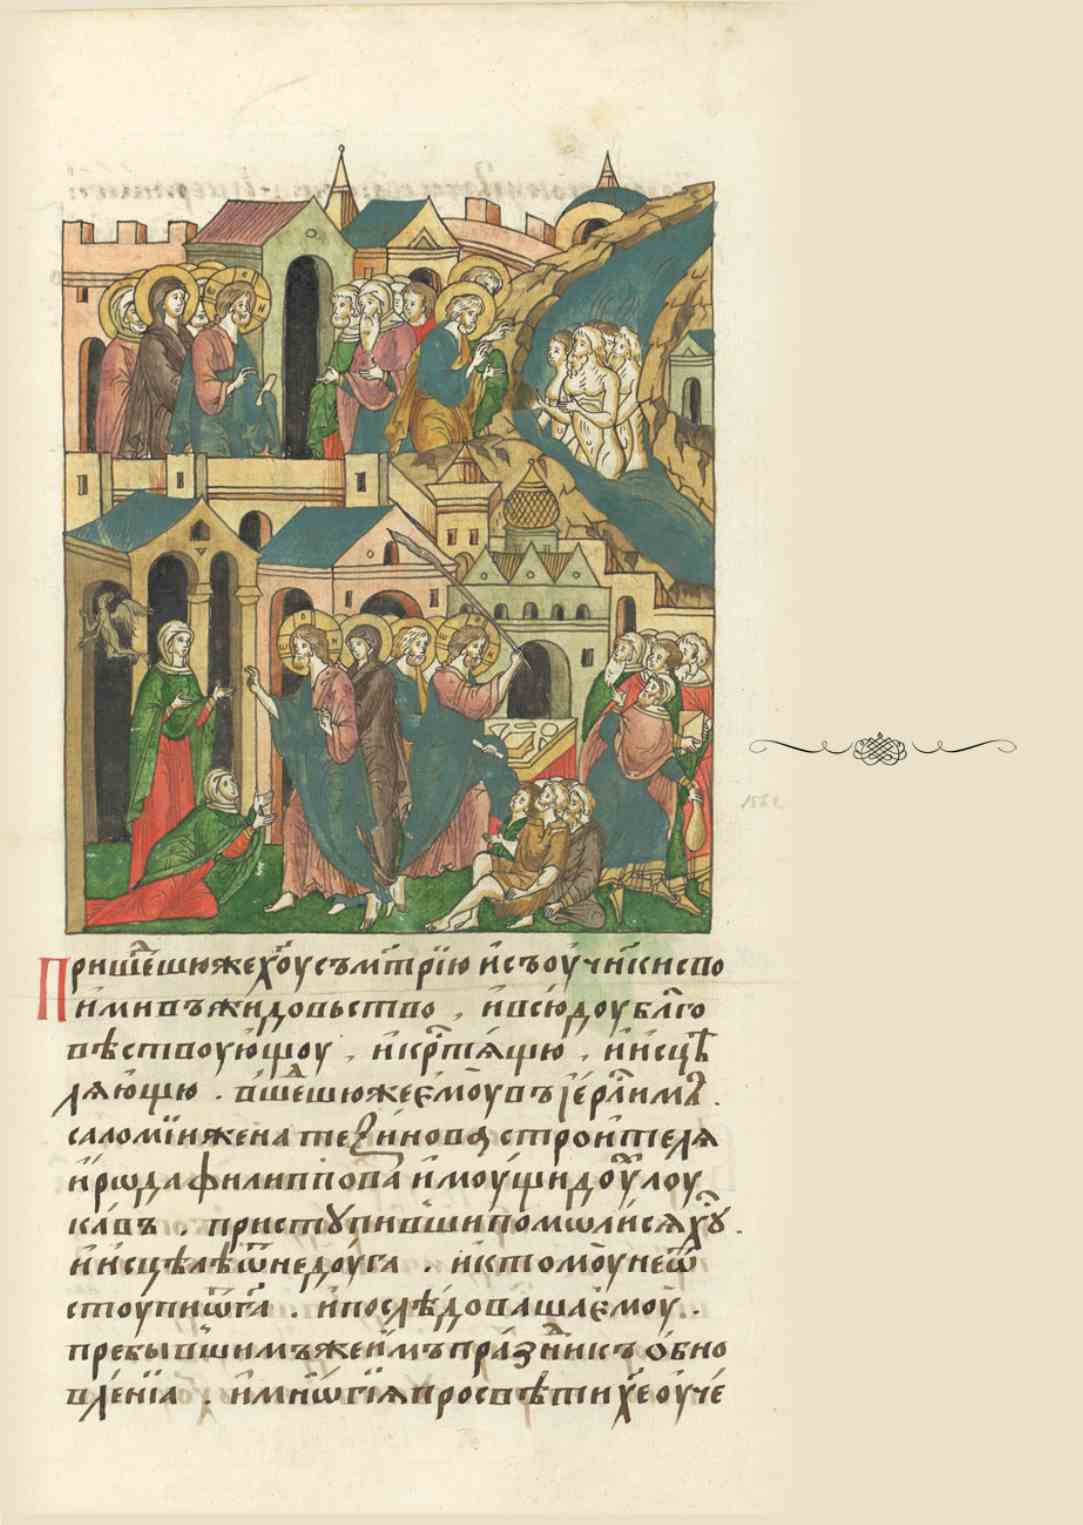 Пришедшюжехⷭ҇оусъмт҃рїю исъоучн҃кисво
имивъжидовьство , ивсюдоублг҃о
вѣствоующоу , икрⷭ҇тящю , иисцѣ
ляющю . вшедшюжеємоувъіерⷭ҇лимъ .
саломїнижена тезиноваꙗстроителя
иродафилиппова имоущидоуⷯлоу
кавъ . приступившипомолисяхⷭ҇у .
иисцѣлѣѿнедоуга . иктомоунеѿ
стоупиѿнегⷪ҇а . ипослѣдовашаємоу .
пребывшимъжеимъпразⷣникъ обно
вленїа . имнѡгїяпросвѣтихⷭ҇еоуче